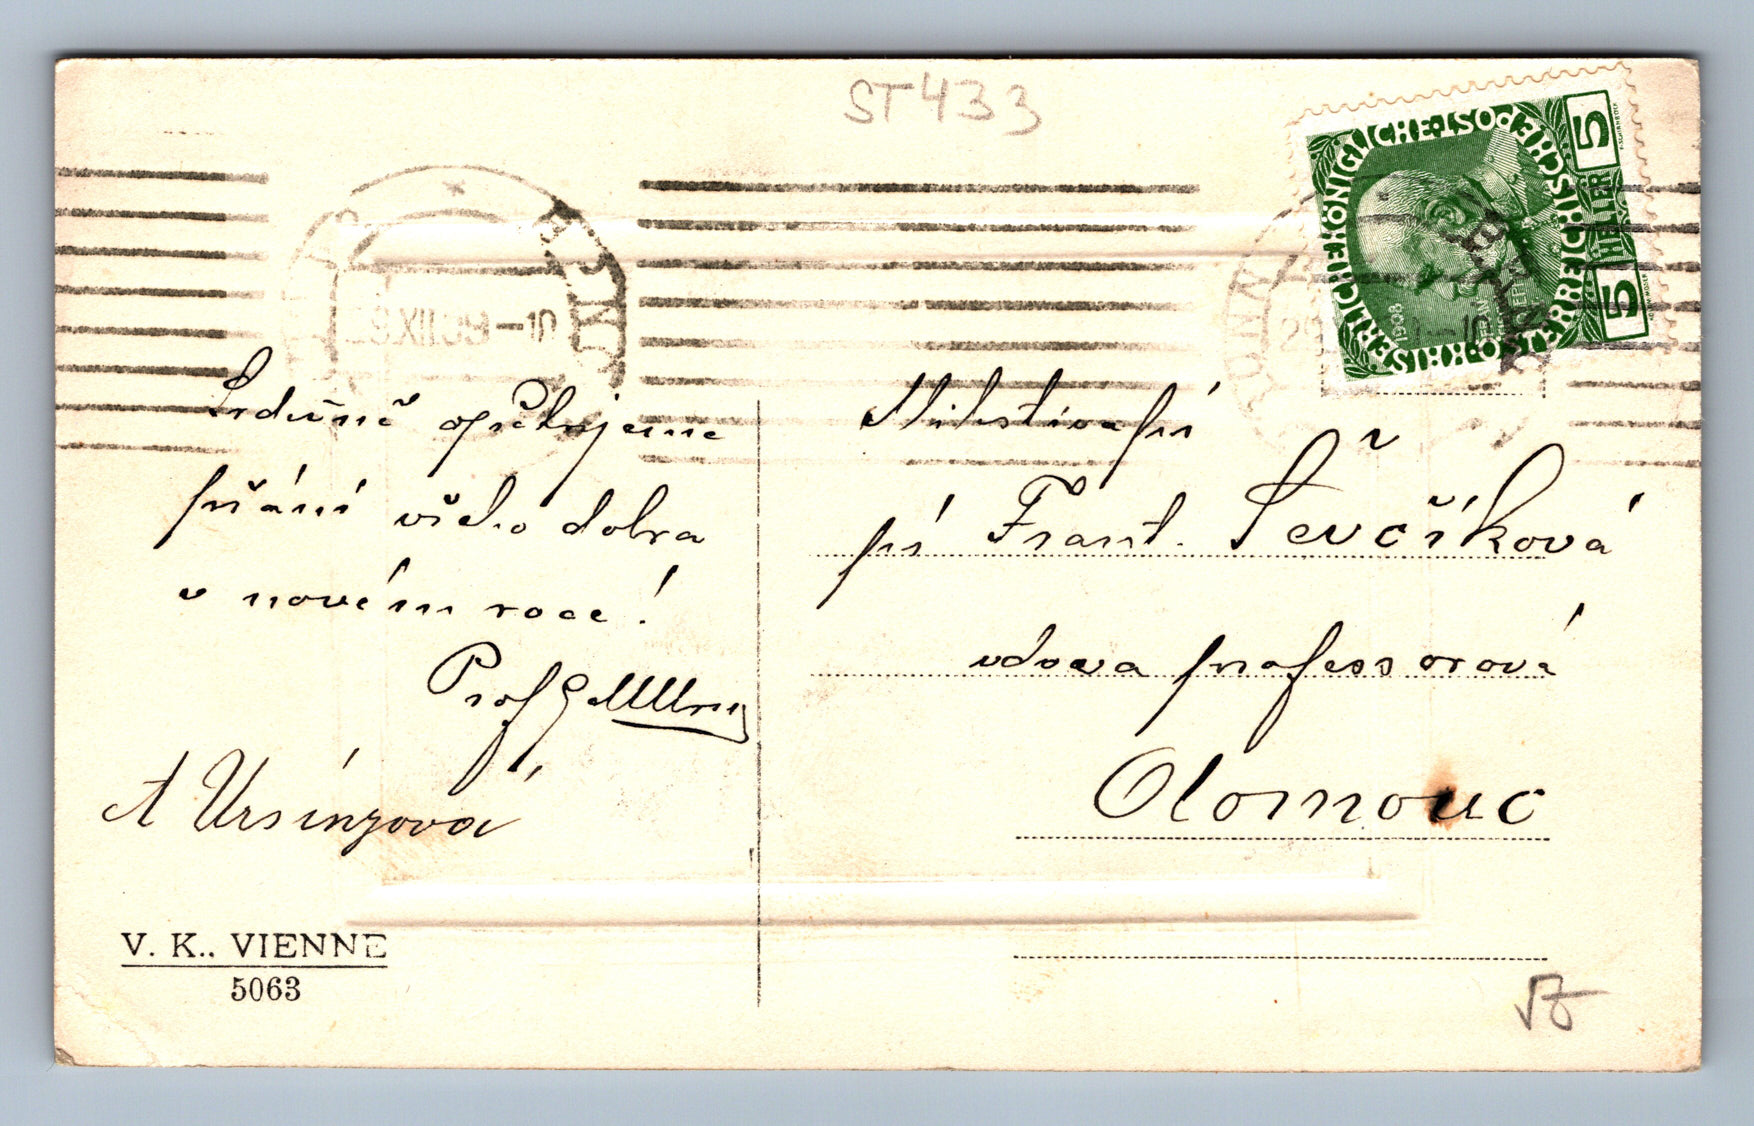 ST433
KAISERLICHE KÖNIGLICHE POST
ÖSTERREICHISCHE
5 HELLER 5
1908
XII 09–10
Srdečně opětujeme
přání všeho dobra
v novém roce!
Prof
A Ursínyová
Milostivá pí
pí Frant. Ševčíková
vdova professorová
Olomouc
V. K., VIENNE
5063